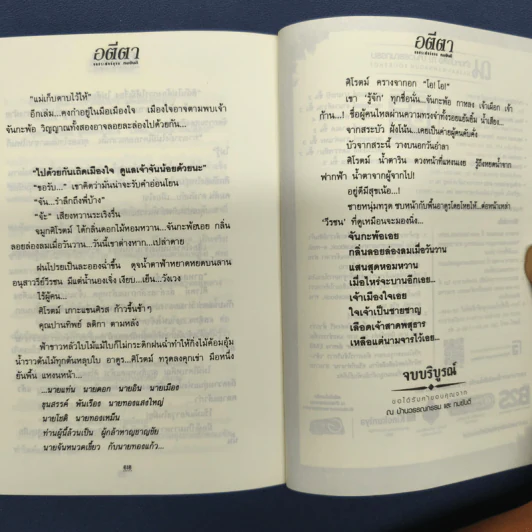 อตีตา
"แม่เก็บดาบไว้ให้"
อีกเล่ม...คงกำอยู่ในมือเมืองใจ เมืองใจอาจตามพบเจ้า
จันกะพ้อ วิญญาณทั้งสองอาจลอยละล่องไปด้วยกัน...
"ไปด้วยกันเถิดเมืองใจ ดูแลเจ้าจันน้อยด้วยนะ"
"ขอรับ..." เขาคิดว่ามั่นน่าจะรับคำอ่อนโยน
"จัน...รำลึกถึงพี่บ้าง"
"จ้ะ" เสียงหวานระเริงรื่น
จมูกศิโรตม์ ได้กลิ่นดอกไม้หอมหวาน...จันกะพ้อเอย กลิ่น
ลอยล่องลมเมื่อวันวาน...วันนี้เขาต่างหาก...เปล่าดาย
ฝนโปรยเป็นละอองฉ่ำชื้น ดุจน้ำตาฟ้าหยาดหยดบนลาน
อนุสาวรีย์วีรชน มีแต่น้ำนองเจิ่ง เงียบ...เย็น...วังเวง
ไร้ผู้คน...
ศิโรตม์ เกาะแขนศิรส ก้าวขึ้นช้าๆ
คุณปานทิพย์ ลติกา ตามหลัง
ฟ้าขาวหลัวใบไม้แม้ใบก็ไม่กระดิกฝนฉ่ำทำให้กิ่งไม้ค้อมอุ้ม
น้ำราวต้นไม้ทุกต้นหลุบใบ อาดูร...ศิโรตม์ ทรุดลงคุกเข่า มือหนึ่ง
ยันพื้น แหงนหน้า...
...นายแท่น นายดอก นายอิน นายเมือง
ขุนสรรค์ พันเรือง นายทองแสงใหญ่
นายโชติ นายทองเหม็น
ท่านผู้นี้ล้วนเป็น ผู้กล้าหาญชาญชัย
นายจันหนวดเขี้ยว กับนายทองแก้ว...
อตีตา
ศิโรตม์ ครางจากอก "โอ! โอ!"
เขา 'รู้จัก' ทุกชื่อนั้น...จันกะพ้อ กาหลง เจ้าเผือก เจ้า
ก้าน...! ชื่อผู้คนไหลผ่านความทรงจำทั้งรอยแย้มยิ้ม น้ำเสียง...
จากสระบัว ฝั่งโน้น...เคยเป็นค่ายผู้คนคับคั่ง
บัวจากสระนี้ วางบนอกวันอำลา
ศิโรตม์ น้ำตาริน ดวงหน้าที่แหงนเงย รู้ถึงหยดน้ำจาก
ฟากฟ้า น้ำตาจากผู้จากไป!
อยู่ดีมีสุขเน้อ...!
ชายหนุ่มทรุด ซบหน้ากับพื้นอาดูรโดยไห้ให้...ต่อหน้าเหล่า
'วีรชน' ที่ดูเหมือนจะมองนิ่ง...
จันกะพ้อเอย
กลิ่นลอยล่องลมเมื่อวันวาน
แสนสุดหอมหวาน
เมื่อไหร่จะบานอีกเอย...
เจ้าเมืองใจเอย
ใจเจ้าเป็นชายชาญ
เลือดเจ้าสาดพสุธาร
เหลือแต่นามจารไว้เอย...
จบบริบูรณ์
ณ บ้านวรรณกรรม และ ทมยันตี